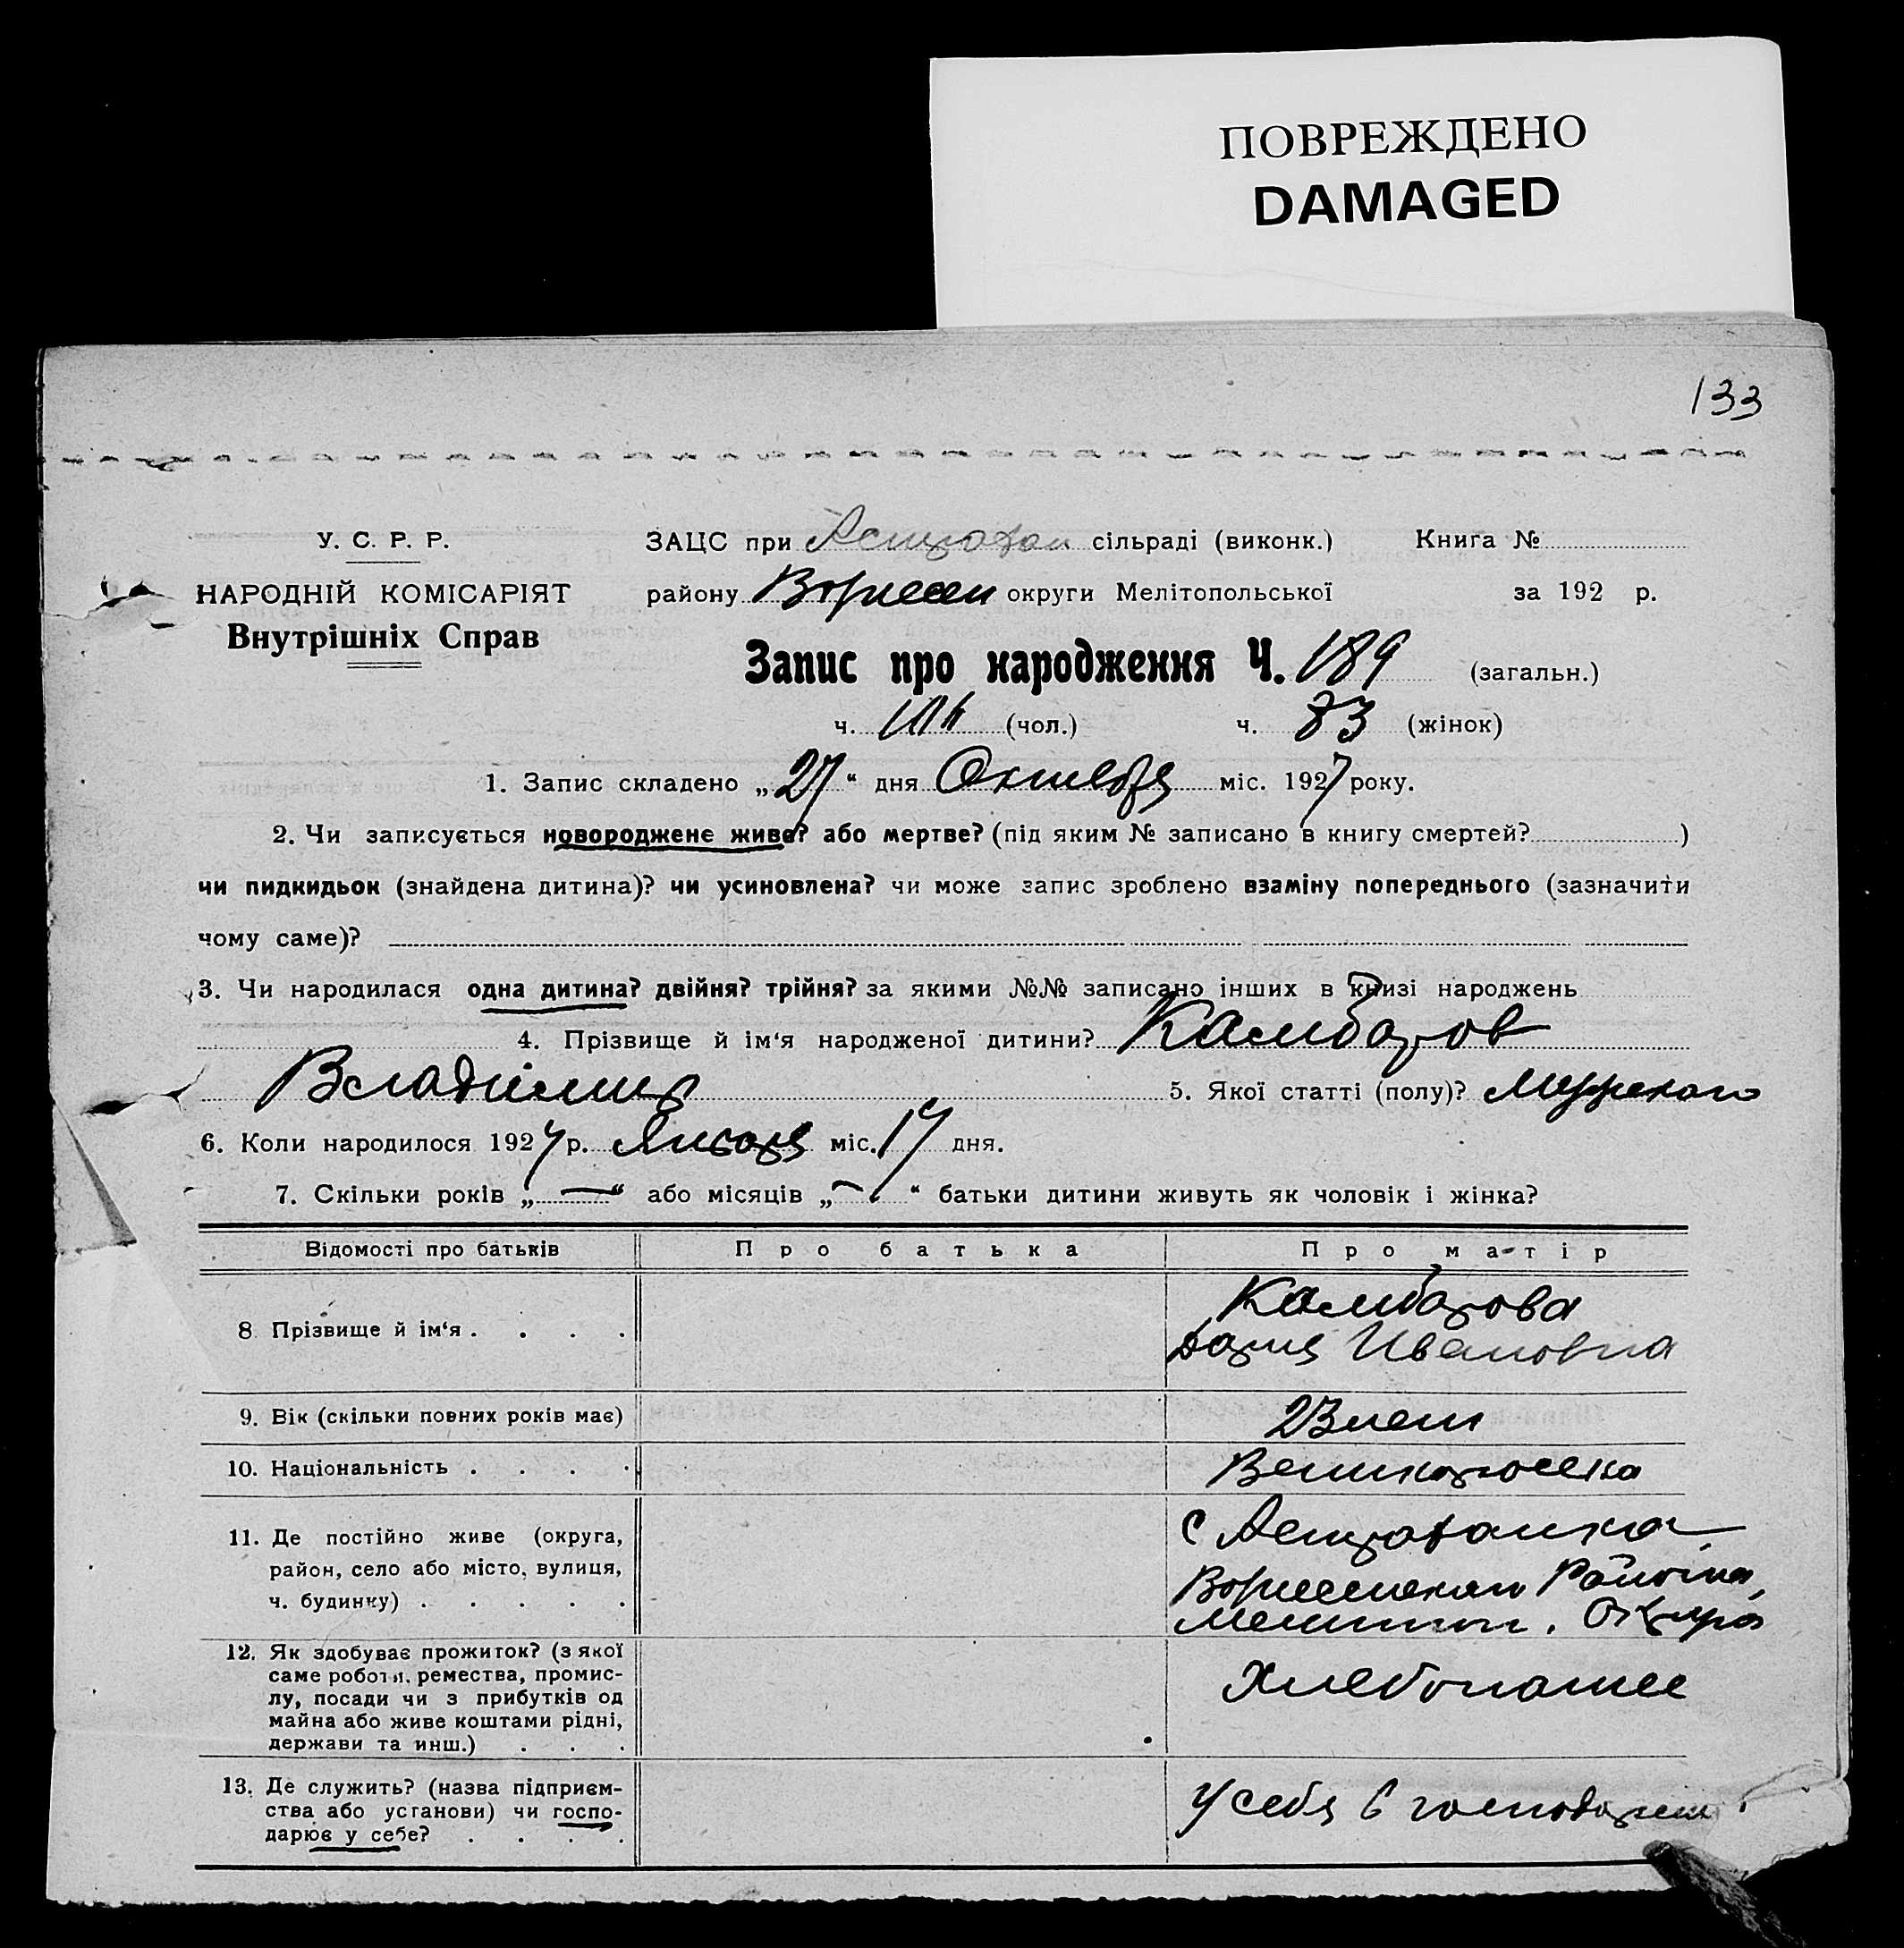 ПОВРЕЖДЕНО
DAMAGED
133
У. С. Р. Р.
НАРОДНІЙ КОМІСАРІЯТ
Внутрішніх Справ
ЗАЦС при Астрахан сільраді (виконк.) Книга №
району округи Мелітопольської за 192 р.
Запис про народження Ч. 189 (загальн.)
ч. 106 (чол.) ч. 83 (жінок)
1. Запис складено „27“ дня Октября міс. 1927 року.
2. Чи записується новороджене живе? або мертве? (під яким № записано в книгу смертей? )
чи пидкидьок (знайдена дитина)? чи усиновлена? чи може запис зроблено взаміну попереднього (зазначити
чому саме)?
3. Чи народилася одна дитина? двійня? трійня? за якими №№ записано інших в книзі народжень
4. Прізвище й ім‘я народженої дитини? Камбаров
Владимир 5. Якої статті (полу)? Мужского
6. Коли народилося 1927 р. Января міс. 17 дня.
7. Скільки років „—“ або місяців „—“ батьки дитини живуть як чоловік і жінка?
Відомості про батьків Про батька Про матір
8 Прізвище й ім‘я . . . . Камбарова
Дария Ивановна
9. Вік (скільки повних років має) 23 лет
10. Національність . . . . Великороска
11. Де постійно живе (округа,
район, село або місто, вулиця,
ч. будинку) . . . . .
с Астраханка
Района,
Мелитоп. Округа
12. Як здобуває прожиток? (з якої
саме роботи, ремества, промис-
лу, посади чи з прибутків од
майна або живе коштами рідні,
держави та инш.) . . .
Хлебопашес
13. Де служить? (назва підприєм-
ства або установи) чи госпо-
дарює у себе? . . . .
у себя в господарстві